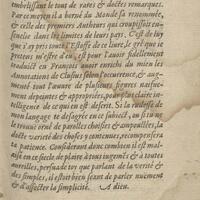 embellissant le tout de rares & doctes remarques.
Par ce moyen il a borné du Monde sa renommée,
& celle des premiers Autheurs qui croupissoit en-
seuelie dans les limites de leurs pays. C'est de luy
que i'ay pris toute l'Estoffe de ce liure, le gré que ie
pretens m'estre deu, est pour l'auoir fidellement
traduict en François auoir enrichi du mien les
Annotations de Clusius selon l'occurrence, & aug-
menté tout l'œuure de plusieurs figures naïfue-
ment depeintes & appropriées, pour plus claire in-
telligence de ce qui en est descrit. Si la rudesse de
mon langage te desagrée en ce subiect, où il
ne trouue orné de parolles choisies & ampoullées, la
docte varieté des choses y contenues, recompensera
ta patience. Considerant donc combien il est mal-
aisé en ce siecle de plaire à tous iugemẽs & à toutes
oreilles, persuade toy que parlant de la verité &
des simples, il est tousiours seant de parler nuëment
& d'affecter la simplicité. A dieu.